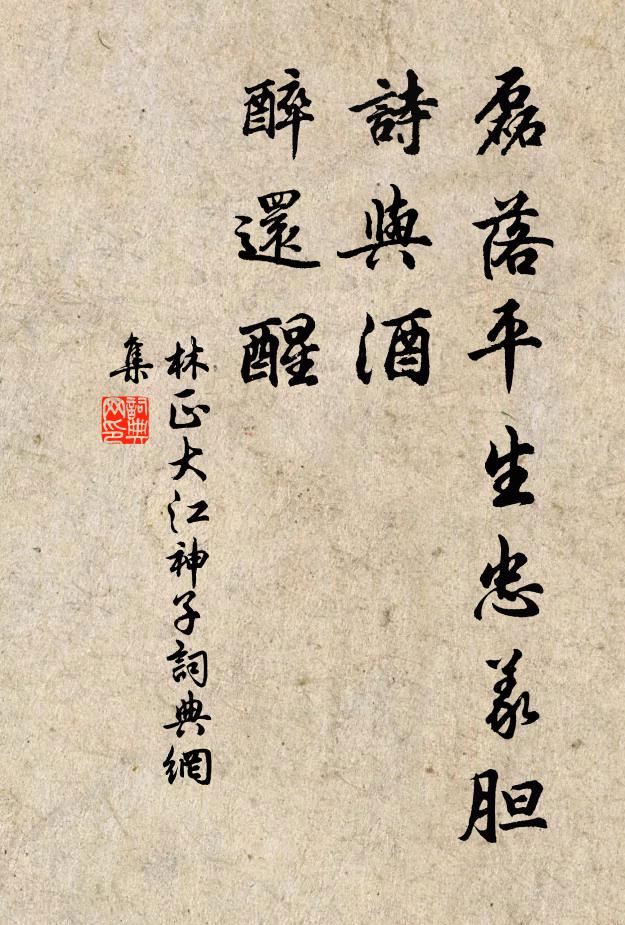 磊落平生忠義胆
詩與酒
醉還醒
林正大江神子詞典網
集
詞典
网印